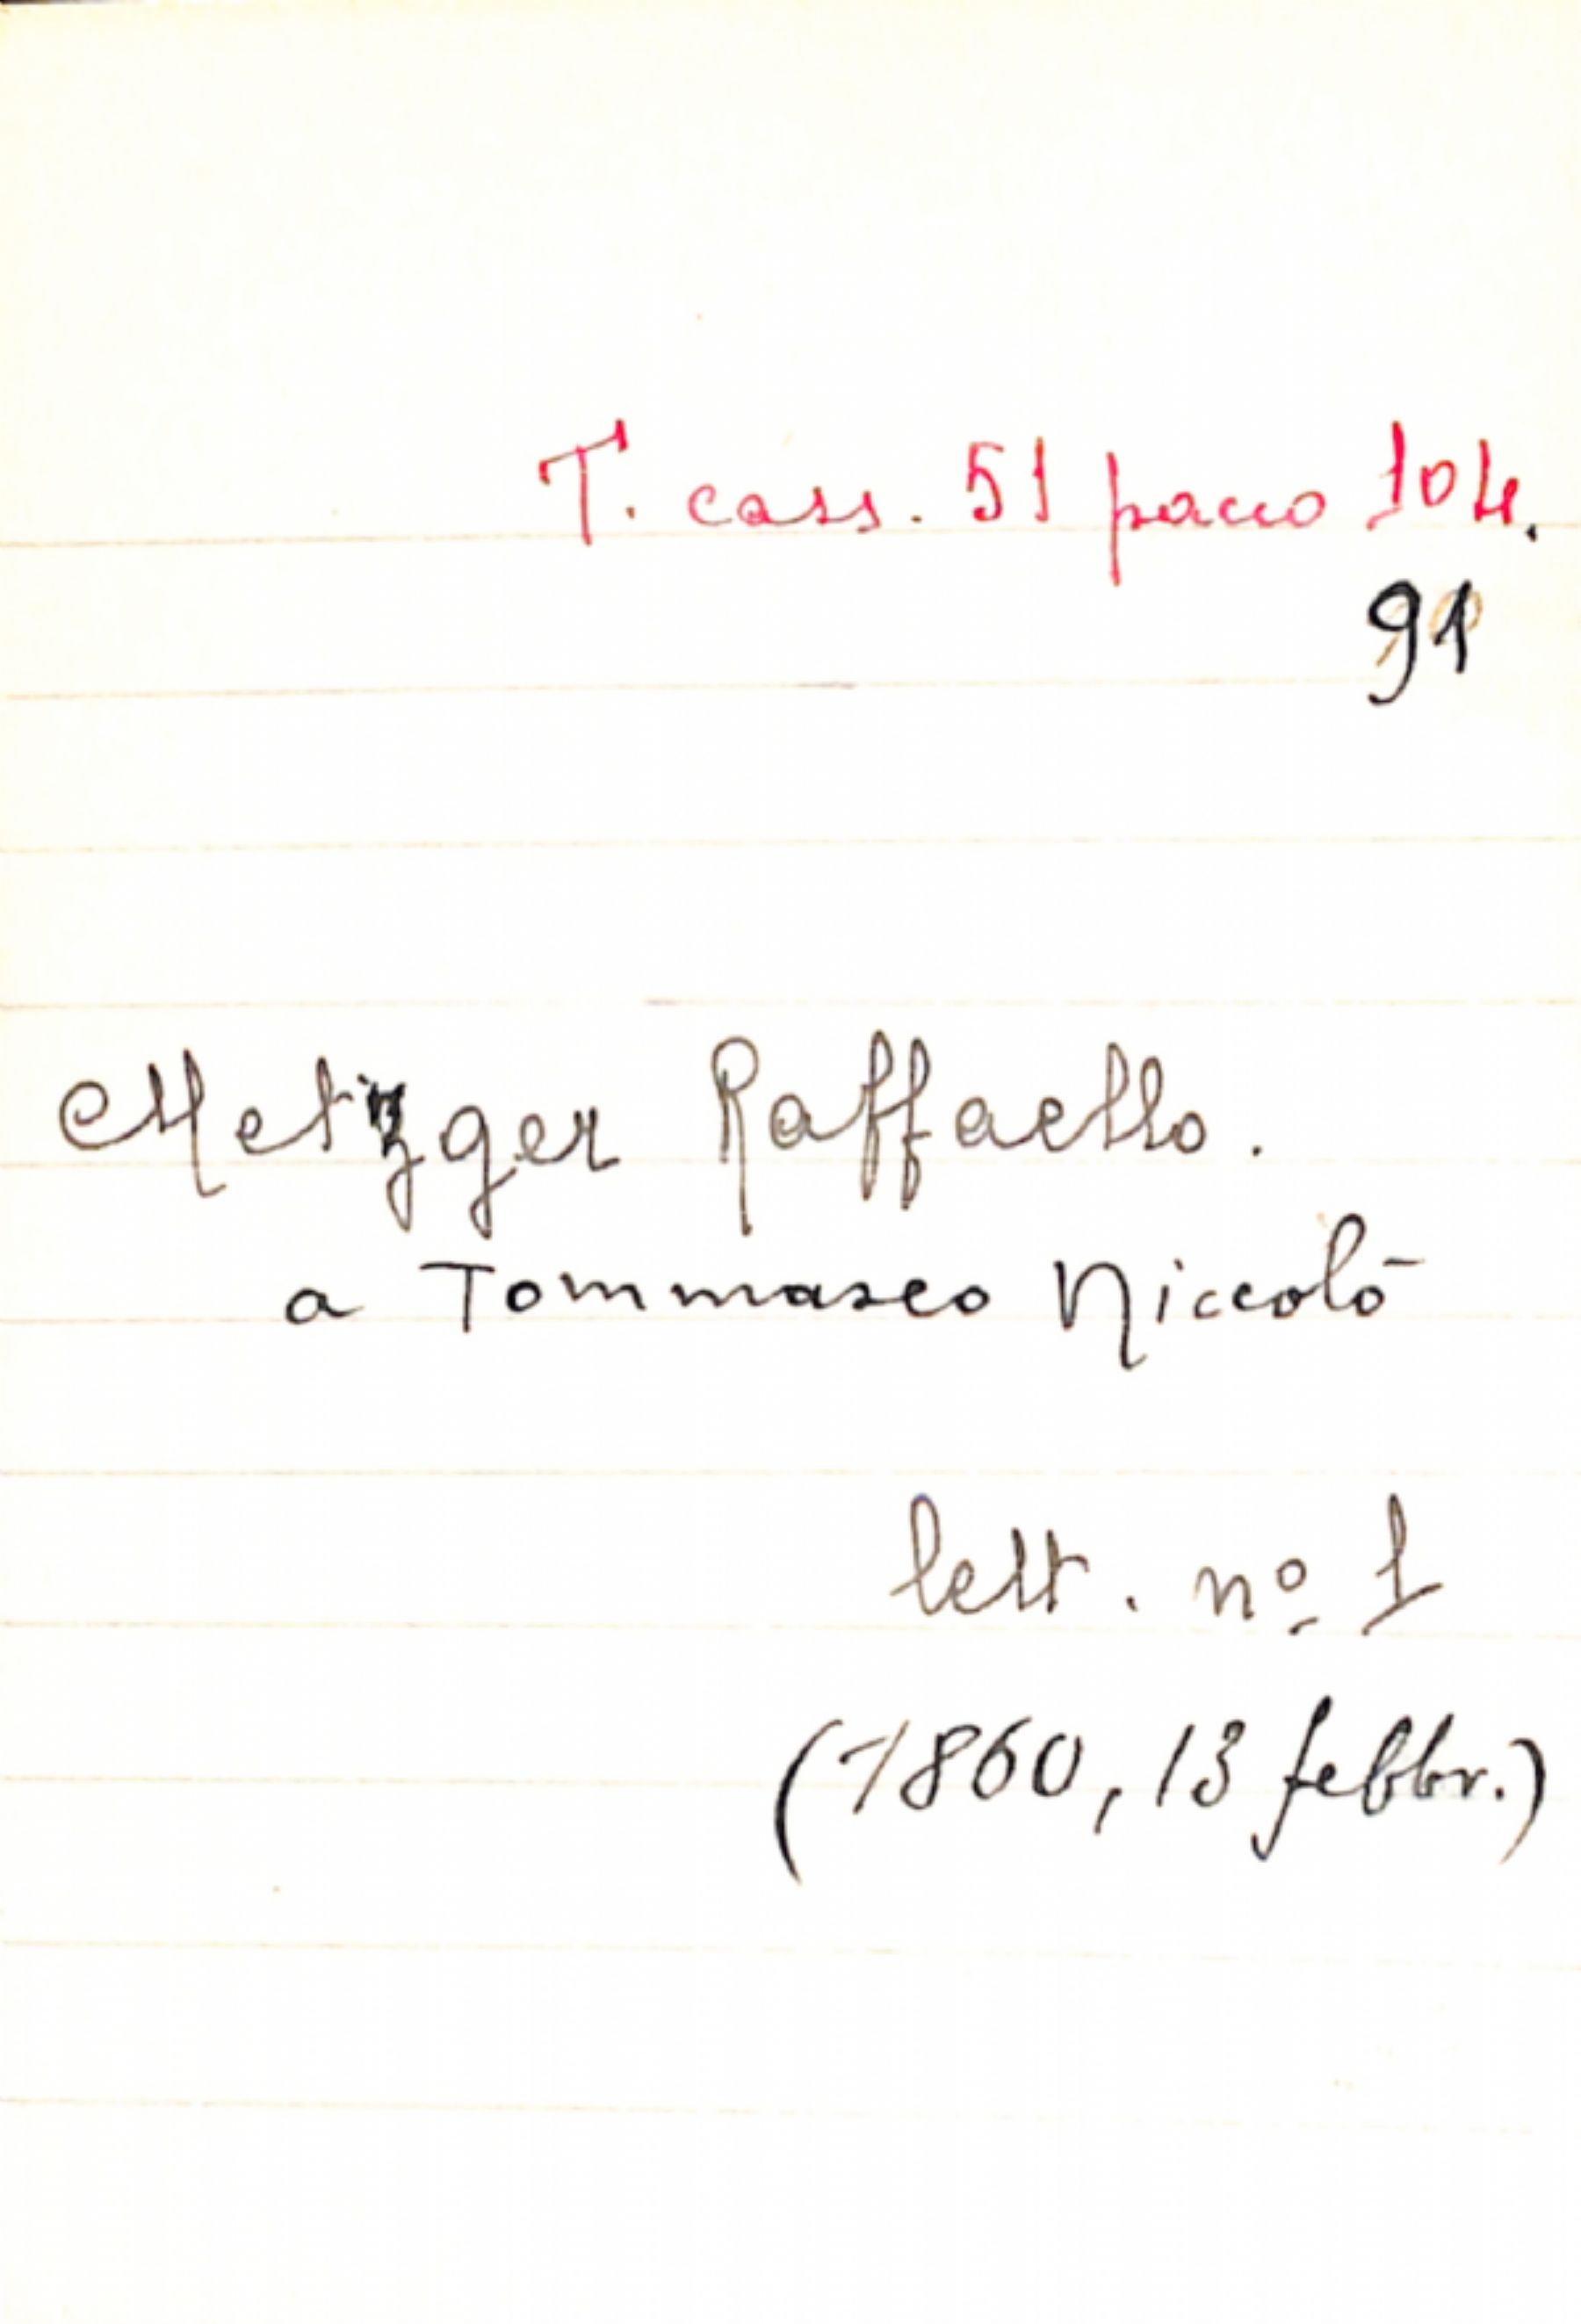 T. cass. 51 pacco 104.
91
Metzger Raffaello.
a Tommaseo Niccolò
lett. nº 1
(1860, 13 febbr.)